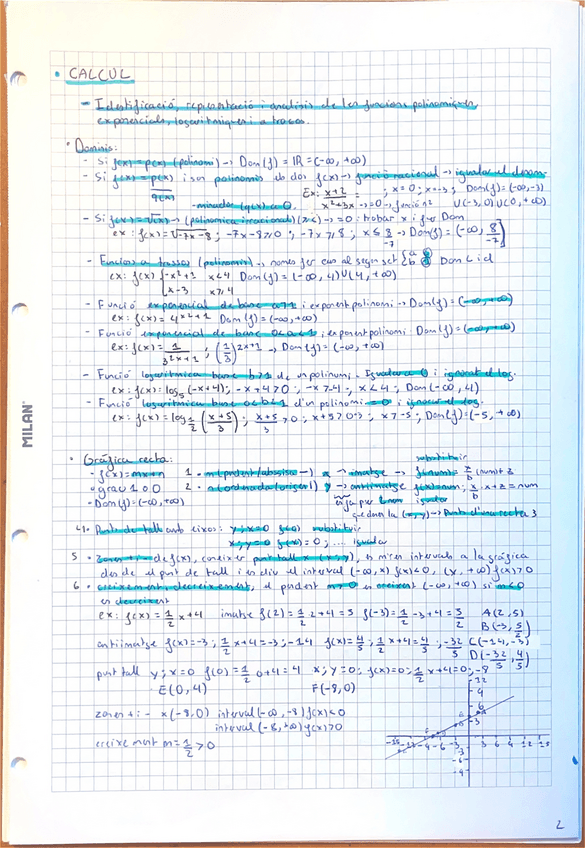 • CALCUL
- Identificació, representació i analisis de les funcions polinomiques,
exponencials, logaritmiques i a trossos.
• Dominis:
- Si f(x) = p(x) (polinomi) → Dom(f) = IR = (-∞, +∞)
- Si f(x) = p(x)/q(x) i son polinomis els dos f(x) → funció racional → igualar el denom-
-minador (q(x)) a 0. Ex: x+2/x²+3x → =0 → ; x=0 ; x=-3 ; Dom(f) = (-∞, -3) ∪ (-3, 0) ∪ (0, +∞)
- Si f(x) = √x → (polinomica irracional) → =0 i trobar x i fer Dom
ex: f(x) = √-7x-8 ; -7x-8≥0 ; -7x≥8 ; x ≤ 8/-7 → Dom(f) = (-∞, 8/-7]
- Funcions a trossos (polinomis) → nomes fer cas al segon set { a b Dom
ex: f(x) { -x²+3 x<4 Dom(f) = (-∞, 4) ∪ (4, +∞)
x-3 x≥4
- Funció exponencial de base a>1 i exponent polinomi → Dom(f) = (-∞, +∞)
ex: f(x) = 4^x²+1 Dom(f) = (-∞, +∞)
- Funció exponencial de base 0<a<1, exponent polinomi Dom(f) = (-∞, +∞)
ex: f(x) = 1/3^2x+1 ; (1/3)^2x+1 → Dom(f) = (-∞, +∞)
- Funció logaritmica base b>1 de un polinomi. Igualar a 0 i ignorar el log.
ex: f(x) = log₅ (-x+4) ; -x+4>0 ; -x>-4 ; x<4 ; Dom (-∞, 4)
- Funció logaritmica base 0<b<1 d'un polinomi =0 i ignorar el log.
ex: f(x) = log 1/2 (x+5/3) ; x+5/3 >0 ; x+5>0·3 ; x>-5 ; Dom(f) = (-5, +∞)
MILAN
• Gràfica recta: substituir
- f(x) = mx+n 1 • m (pendent/abscisa-) x → imatge → f(num) =
- grau 1 o 0 2 • n (ordenada/origen) y → antiimatge f(x) = num ; · x+z = num
- Dom(f) = (-∞, +∞) igualar
(x, y) → Punt d'una recta 3
4. Punts de tall amb eixos: y ; x=0 f(0) substituir
x ; y=0 f(x) = 0 ; ... igualar
5 • Zones + i - de f(x), coneixer punt tall x (x, y), es miren intervals a la gràfica
des de el punt de tall i es div el interval (-∞, x) f(x)<0, (x, +∞) f(x)>0
6 • creixement, decreixement, el pendent m>0 es creixent (-∞, +∞) si m<0
es decreixent
ex: f(x) = 1/2 x+4 imatge f(2) = 1/2 · 2+4 = 5 f(-3) = 1/2 · -3+4 = 5/2 A(2, 5)
B(-3, 5/2)
antiimatge f(x) = -3 ; 1/2 x+4 = -3 ; -14 f(x) = 4/5 ; 1/2 x+4 = 4/5 ; -32/5 C(-14, -3)
D(-32/5, 4/5)
punt tall y ; x=0 f(0) = 1/2 · 0+4 = 4 x ; y=0 ; f(x) = 0 ; 1/2 x+4 = 0 ; -8
E(0, 4) F(-8, 0)
zones + i - x(-8, 0) interval (-∞, -8) f(x)<0
interval (-8, +∞) f(x)>0
creixement m = 1/2 > 0
2